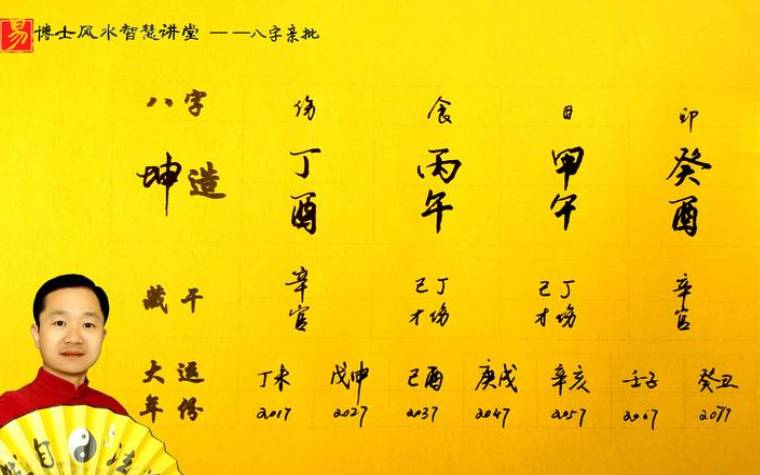 易 博士风水智慧讲堂 ——八字亲批
八字 伤 食 日 印
坤造 丁酉 丙午 甲午 癸酉
藏干 辛官 己丁才伤 己丁才伤 辛官
大运 丁未 戊申 己酉 庚戌 辛亥 壬子 癸丑
年份 2017 2027 2037 2047 2057 2067 2077